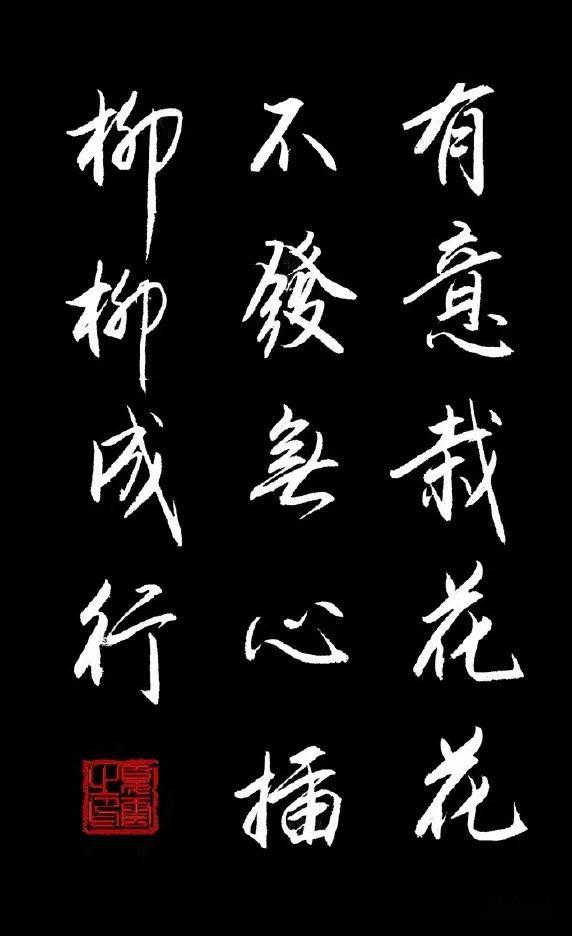 有意栽花花
不發無心插
柳柳成行